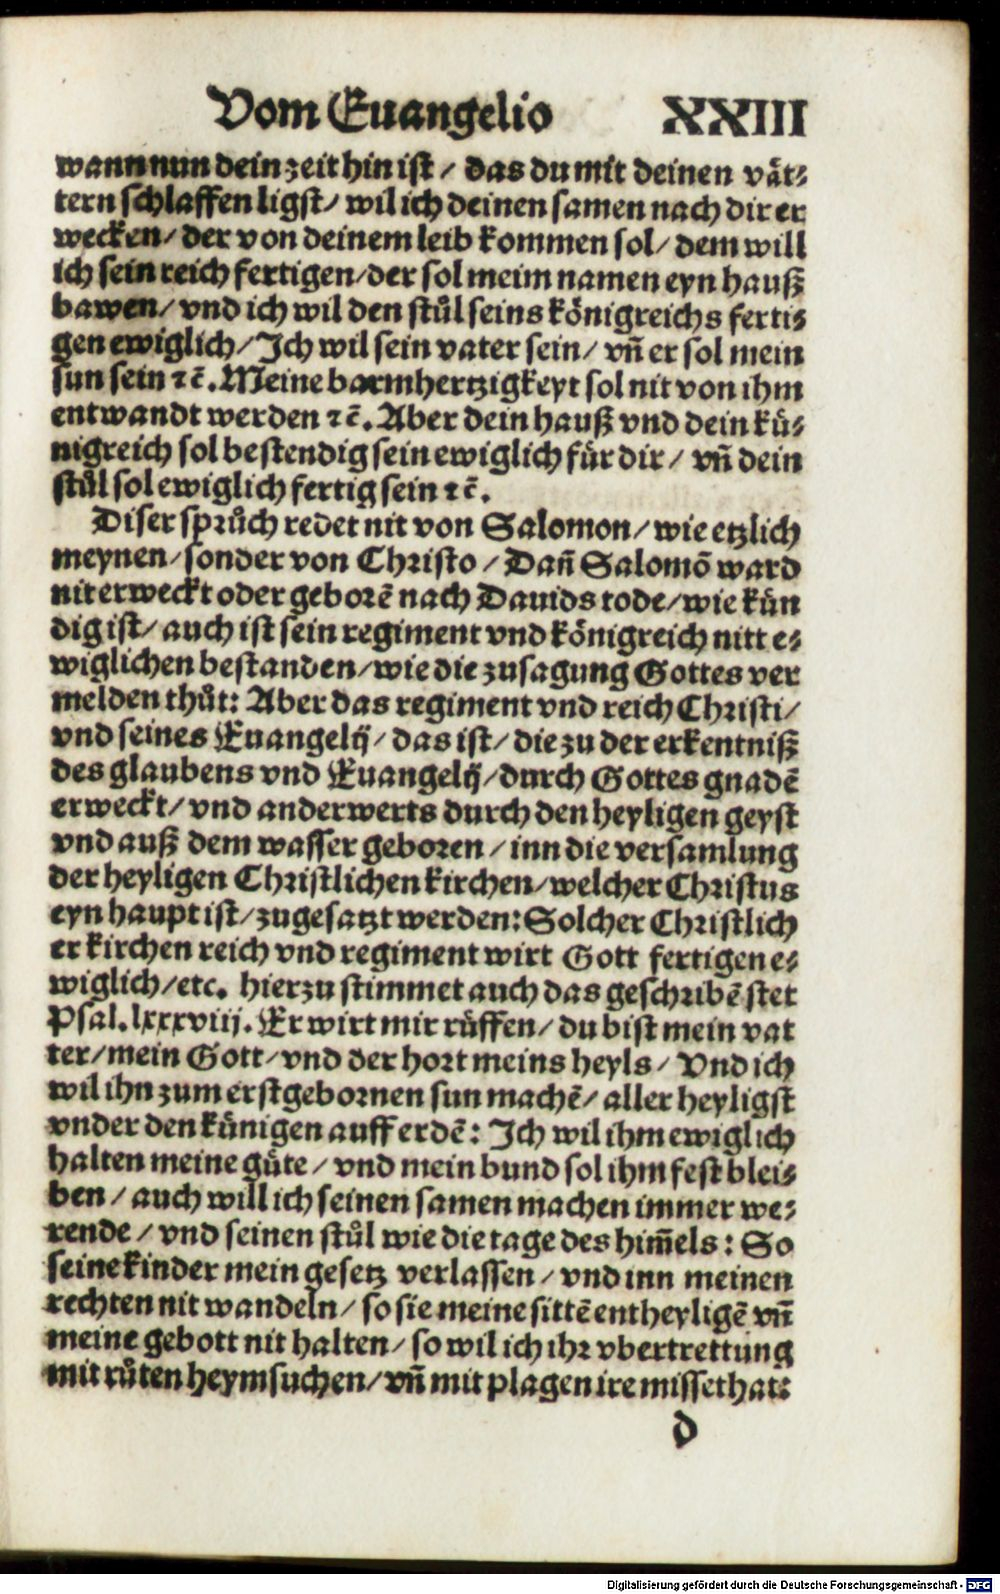 Vom Euangelio XXIII
wann nun dein zeit hin ist / das du mit deinen vät⸗
tern schlaffen ligst / wil ich deinen samen nach dir er
wecken / der von deinem leib kommen sol / dem will
ich sein reich fertigen / der sol meim namen eyn hauß
bawen / vnd ich wil den stůl seins königreichs ferti⸗
gen ewiglich / Ich wil sein vater sein / vñ er sol mein
sun sein ⁊c̄. Meine barmhertzigkeyt sol nit von ihm
entwandt werden ⁊c̄. Aber dein hauß vnd dein kü⸗
nigreich sol bestendig sein ewiglich für dir / vñ dein
stůl sol ewiglich fertig sein ⁊c̄.
Diser sprůch redet nit von Salomon / wie etzlich
meynen / sonder von Christo / Dañ Salomō ward
nit erweckt oder geborē nach Dauids tode / wie kün
dig ist / auch ist sein regiment vnd königreich nitt e⸗
wiglichen bestanden / wie die zusagung Gottes ver
melden thůt: Aber das regiment vnd reich Christi /
vnd seines Euangelij / das ist / die zu der erkentniß
des glaubens vnd Euangelij / durch Gottes gnadē
erweckt / vnd anderwerts durch den heyligen geyst
vnd auß dem wasser geboren / inn die versamlung
der heyligen Christlichen kirchen / welcher Christus
eyn haupt ist / zugesatzt werden: Solcher Christlich
er kirchen reich vnd regiment wirt Gott fertigen e⸗
wiglich / etc. hierzu stimmet auch das geschribē stet
Psal. lxxxviij. Er wirt mir rüffen / du bist mein vat
ter / mein Gott / vnd der hort meins heyls / Vnd ich
wil ihn zum erstgebornen sun machē / aller heyligst
vnder den künigen auff erdē: Ich wil ihm ewiglich
halten meine güte / vnd mein bund sol ihm fest blei⸗
ben / auch will ich seinen samen machen immer we⸗
rende / vnd seinen stůl wie die tage des him̄els: So
seine kinder mein gesetz verlassen / vnd inn meinen
rechten nit wandeln / so sie meine sittē entheyligē vñ
meine gebott nit halten / so wil ich ihr vbertrettung
mit růten heymsuchen / vñ mit plagen ire missethat:
d
Digitalisierung gefördert durch die Deutsche Forschungsgemeinschaft - DFG